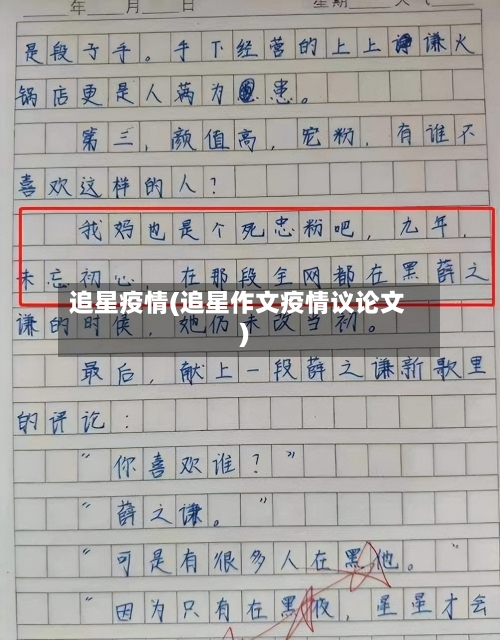 年 月 日 星期 天气
是段子手。手下经营的上上谦火
锅店更是人满为患。
第三，颜值高，宠粉，有谁不
喜欢这样的人？
我妈也是个死忠粉吧，九年，
未忘初心，在那段全网都在黑薛之
追星疫情(追星作文疫情议论文
)
谦的时候，她仍未改当初。
最后，献上一段薛之谦新歌里
的评论：
“你喜欢谁？”
“薛之谦。”
“可是有很多人在黑他。”
“因为只有在黑夜，星星才会